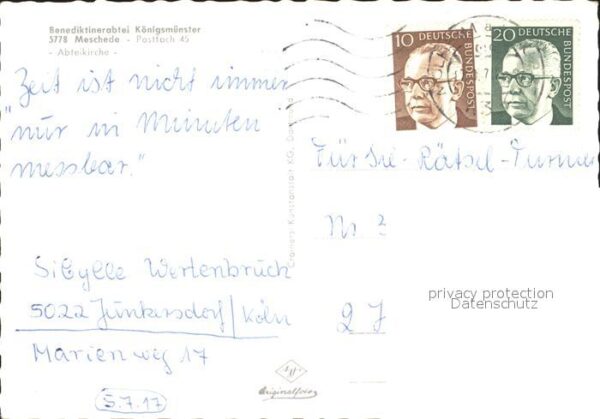 Benediktinerabtei Königsmünster
5778 Meschede - Postfach 45
- Abteikirche -
10 DEUTSCHE BUNDESPOST
20 DEUTSCHE BUNDESPOST
Zeit ist nicht immer
"nur in Minuten
messbar."
Für Sie - Rätsel-Turnier
Nr 2
2 J
Sibylle Wertenbruch
5022 Junkersdorf/Köln
Marienweg 17
5.7.17
Cramers Kunstanstalt KG, Dortmund
Originalfoto
privacy protection
Datenschutz